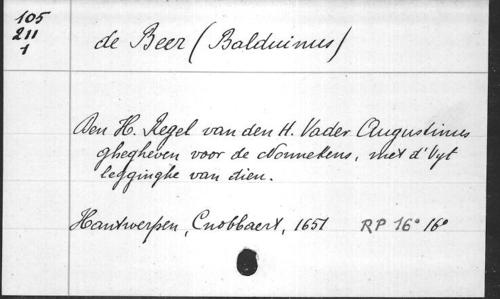 105
211
1
de Beer (Balduinus)
Den H. Regel van den H. Vader Augustinus
ghegheven voor de Nonnekens, met d'Vyt
legginghe van dien.
Hantwerpen, Cnobbaert, 1651 RP 16° 16°